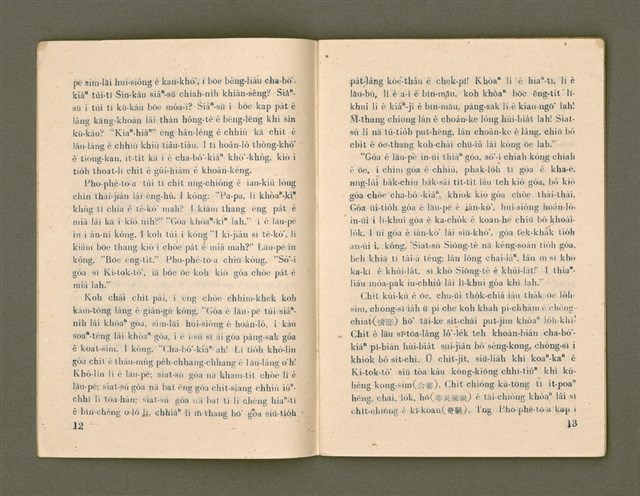 pē sim-lāi hui-siông ê kan-khó͘, i bōe bêng-liâu cha-bó͘
kiáⁿ túi-tī Sin-kàu siáⁿ-sū chiah-nih khiân-sêng? Siáⁿ-
sū i túi tī kū-kàu bōe móa-ì? Siáⁿ-sū i bōe kap pa̍t ê
lâng kāng-khoán lāi thàn hông-tè ê bēng-lēng khì sìn
kū-kàu? "Kiaⁿ-hiâⁿ" eng hān-lêng ê chhiú kā chit ê
lāu-lâng ê chhiú khiú tiâu-tiâu. I tī hoân-ló thòng-khó͘
ê tiong-kan, it-tit kā i ê cha-bó͘-kiáⁿ khó͘-khǹg, kiò i
tio̍h thoat-lī chit ê gûi-hiám ê khoân-kéng.
Pho-phé-to-a túi tī chit nn̄g-chiông ê iau-kiû lóng
chin thái-jiân lâi èng-hù. I kóng: "Pa-pa, lí khòaⁿ-kìⁿ
khǹg tī chia ê tê-kó͘ mah? I kiám thang èng pa̍t ê
miâ lâi kā i kiò nih?" "Góa khòaⁿ-kìⁿ lah," i ê lāu-pē
in i án-ni kóng. I koh túi i kóng "I kì-jiân sī tê-kó͘, lí
kiám bōe thang kiò i chòe pa̍t ê miâ mah?" Lāu-pē ìn
kóng, "Bōe èng-tit." Pho-phé-to-a chiū kóng, "Só͘-í
góa sī Ki-tok-tô͘, iā bōe ōe koh kiò góa chòe pa̍t ê
miâ lah."
Koh chài chit pái, i eng chòe chhim-khek koh
kám-tōng lâng ê giân-gú kóng, "Góa ê lāu-pē túi siáⁿ-
nih lâi khòaⁿ góa, sim-lāi hui-siông ê hoân-ló, i kàu
soaⁿ-téng lâi khòaⁿ góa, i ê ì-sù sī ài góa pàng-sak góa
ê koat-sim. I kóng, "Cha-bó͘-kiáⁿ ah! Lí tio̍h khó-lîn
góa chit ê thâu-mn̂g pe̍h-chhang-chhang ê lāu-lâng o͘h!
Khó-lîn lí ê lāu-pē; siat-sú góa nā kham-tit chòe lí ê
lāu-pē; siat-sú góa nā bat èng góa chit-siang chhiú iúⁿ-
chhī lí tōa-hàn; siat-sú góa nā bat tī lí chèng hiaⁿ-tī
ê bīn-chêng o-ló lí, chhiáⁿ lí m̄-thang hō͘ góa siū-tio̍h
12
pa̍t-lâng kòe-thâu ê chek-pī! Khòaⁿ lí ê hiaⁿ-tī, lí ê
lāu-bú, lí ê a-î ê bīn-māu, koh khòaⁿ bōe êng-tit lī-
khui lí ê kiáⁿ-jî ê bīn-māu, pàng-sak lí ê kiau-ngō͘ lah!
M̄-thang chiong lán ê choân-ke lóng húi-bia̍t lah! Siat-
sú lí nā tú-tio̍h put-hēng, lán choân-ke ê lâng, chiū bô
chit ê ōe-thang koh-chài chū-iû lâi kóng ōe lah."
"Góa ê lāu-pē in-ūi thiàⁿ góa, só͘-í chiah kóng chiah
ê ōe, i chim góa ê chhiú, phak-lo̍h tī góa ê kha-ē,
nn̄g-lûi ba̍k-chiu ba̍k-sái tit-tit lâu teh kiò góa, bô kiò
góa chòe cha-bó͘-kiáⁿ, khiok kiò góa chòe thài-thài.
Góa ūi-tio̍h góa ê lāu-pē ê jân-kò͘, hui-siông hoân-ló,
in-ūi i lī-khui góa ê ka-cho̍k ê koan-hē chiū bô khoài-
lo̍k. I ūi góa ê iân-kò͘ lâi siū-khó͘, góa tek-khak tio̍h
an-ùi i, kóng, 'Siat-sú Siōng-tè nā kéng-soán tio̍h góa,
beh-khiā tī tāi-á têng; lán lóng chai-iáⁿ, lán m̄ sī khò
ka-kī ê khùi-la̍t, sī khò Siōng-tè ê khùi-la̍t!' I thiaⁿ-
liáu móa-pak iu-chhiû lâi lī-khui góa khì lah."
Chit kúi-kù ê ōe, chū-ūi tho̍k-chiá iáu tha̍k ōe lo̍h-
sim, chóng-sī ia̍h ū pí che koh khah pi-chhám ê chêng-
chiat (情節) hō͘ tāi-ke sit-chāi put-jím khòaⁿ lo̍h-khì!
Chit ê lāu sî tōa-lâng ló͘-le̍k teh khoân-biân cha-bó͘-
kiáⁿ pī-biân húi-bia̍t sui-jiân bô sêng-kong, chóng-sī i
khiok bô sit-chì. Ū chi̍t-ji̍t, siū-lia̍h khì koaⁿ-kaⁿ ê
Ki-tok-tô͘ siū tòa kàu kong-kiōng chhī-tiûⁿ khì kū-
hêng kong-sím (公審). Chit chióng kū-tōng tī it-poaⁿ
hēng, chai, lo̍k, hō͘ (幸災樂禍) ê tāi-chiòng khòaⁿ lâi sī
chi̍t-chióng ê kî-koan (奇觀). Tng Pho-phé-to-a kap i
13